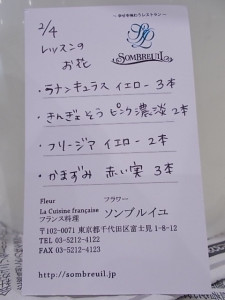 ～幸せを味わうレストラン～
SOMBREUIL
2/4
レッスンの
お花
・ラナンキュラス イエロー 3本
・きんぎょそう ピンク濃淡 2本
・フリージア イエロー 2本
・がまずみ 赤い実 3本
Fleur
La Cuisine française
フランス料理
フラワー
ソンブルイユ
〒102-0071 東京都千代田区富士見 1-8-12
TEL 03-5212-4122
FAX 03-5212-4123
http://sombreuil.jp